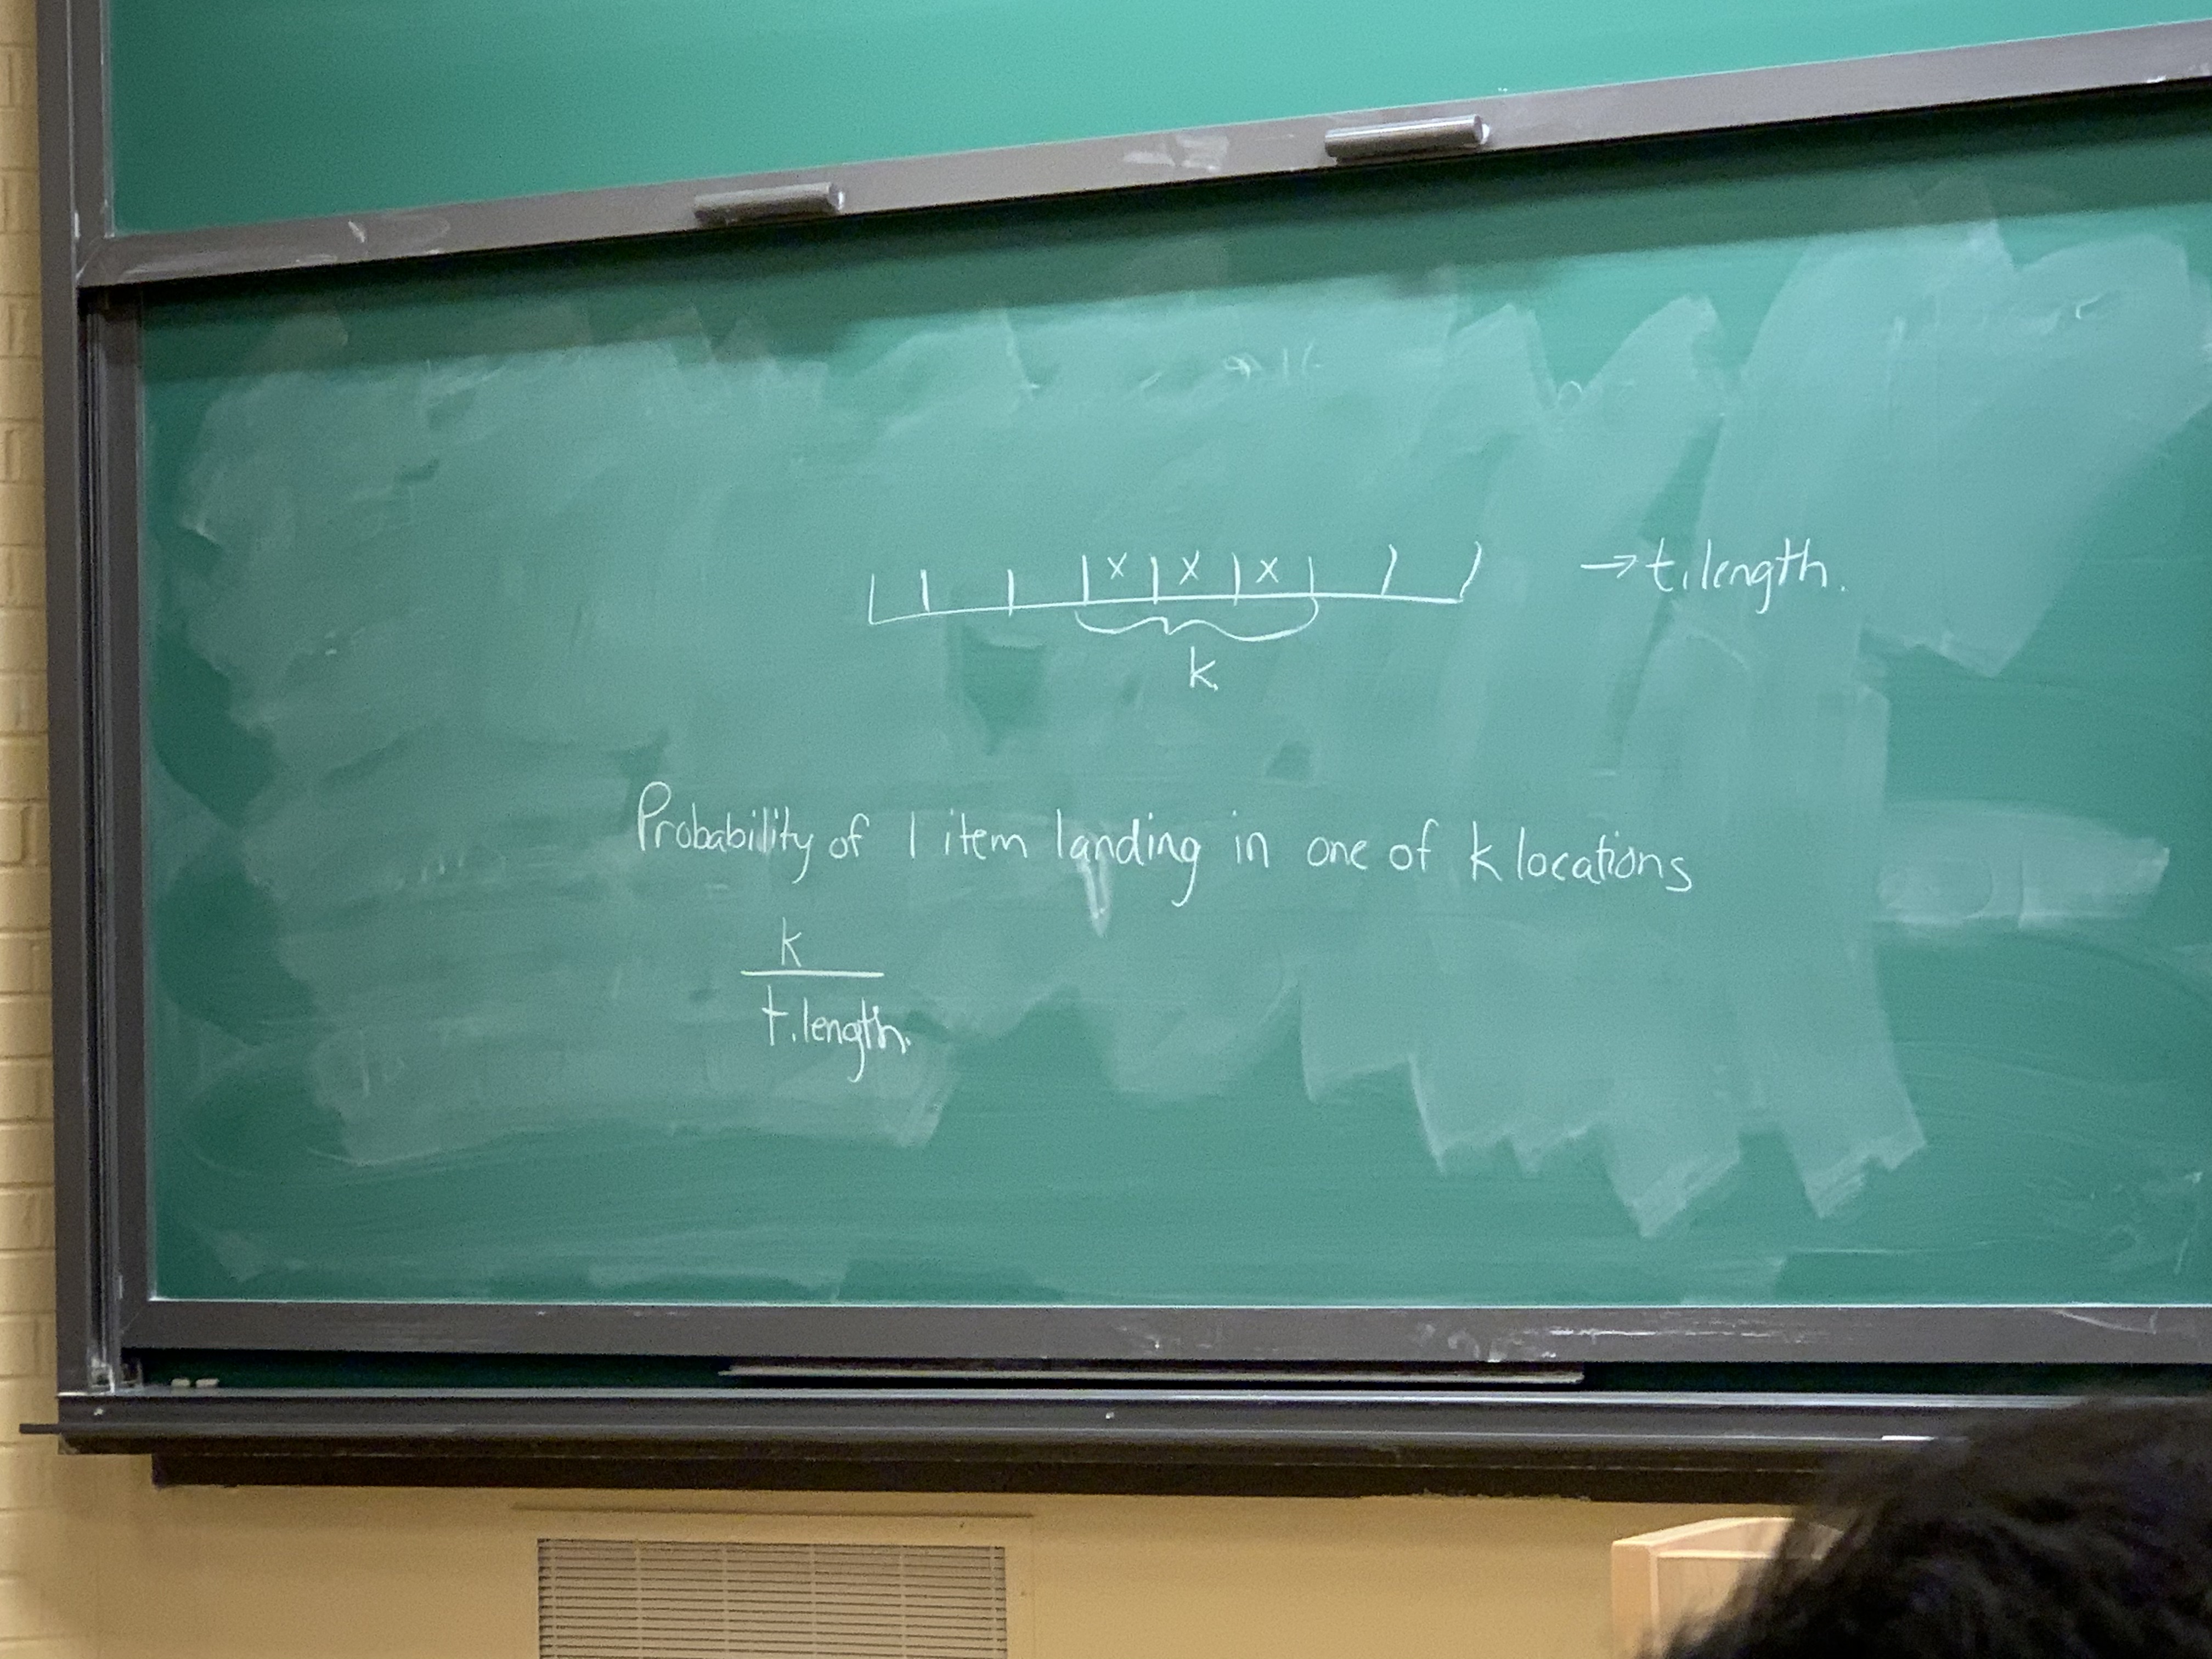 x x x → t.length.
k
Probability of 1 item landing in one of k locations
k
t.length.